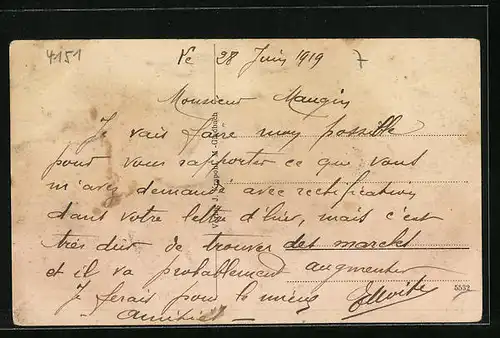 4151
le 28 Juin 1919 7
Monsieur Maugin
Je vais faire mon possible
pour vous rapporter ce que vous
m'avez demandé avec rectification
dans votre lettre d'hier, mais c'est
très dur de trouver des marcks
et il va probablement augmenter
Je ferais pour le mieux
Amitiés
5532